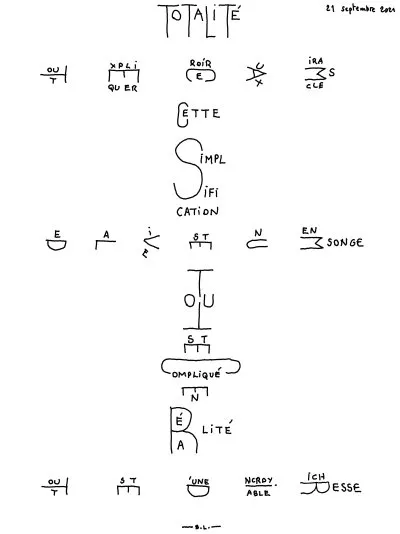 TOTALITÉ
21 septembre 2021
TOUT EXPLIQUER CROIRE AUX MIRACLES
CETTE
SIMPL
IFI
CATION
DE LA VIE EST UN MENSONGE
TOUT
EST
COMPLIQUÉ
EN
RÉALITÉ
TOUT EST D'UNE INCROYABLE RICHESSE